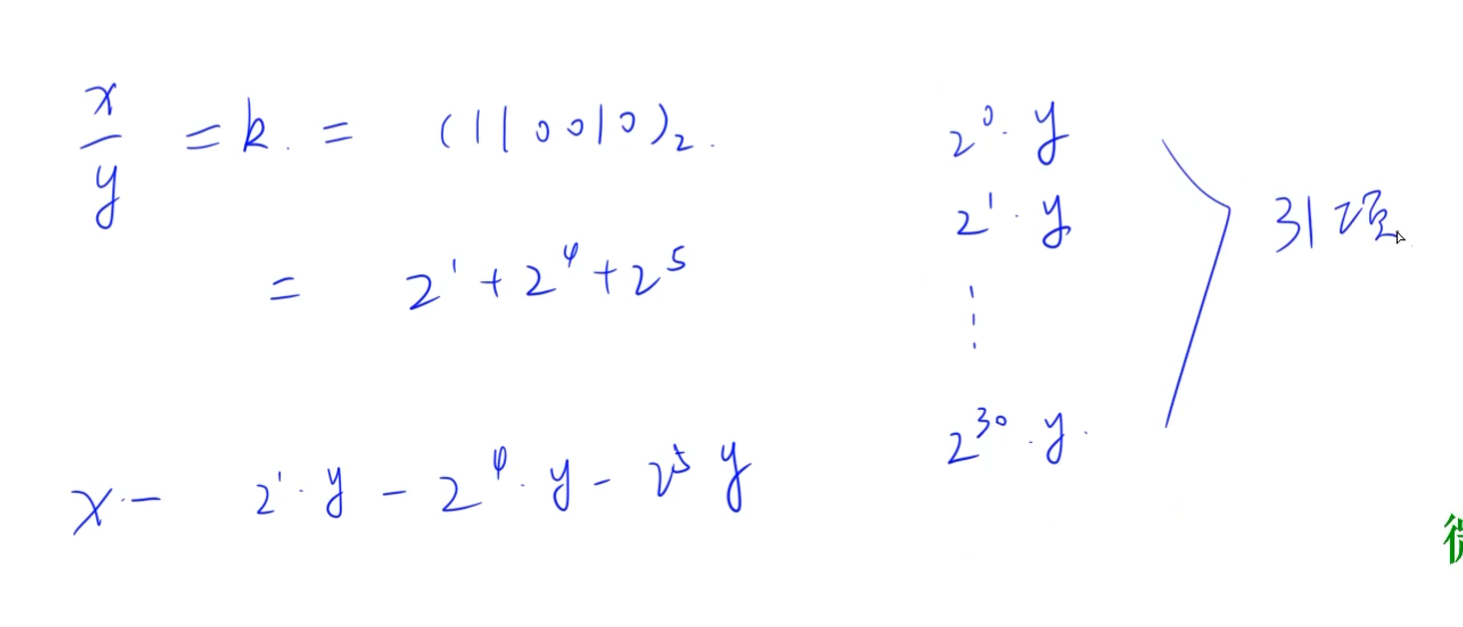 x/y = k. = (110010)₂.
= 2¹ + 2⁴ + 2⁵
x - 2¹·y - 2⁴·y - 2⁵ y
2⁰·y
2¹·y
⋮
2³⁰·y.
31项